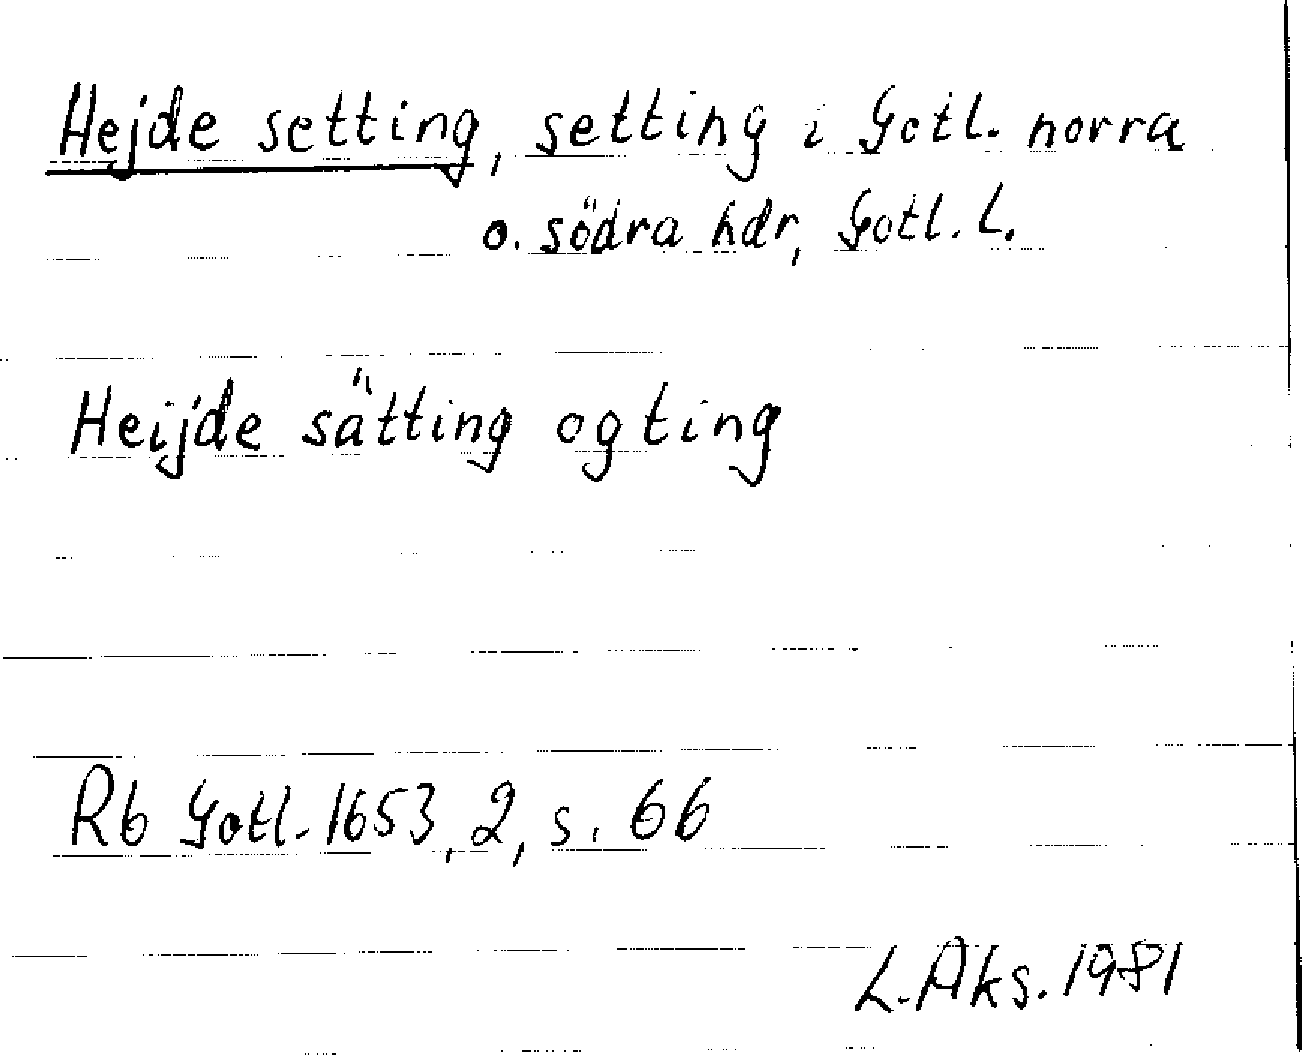 Hejde setting, setting i Gotl. norra
o. södra hdr, Gotl. L.
Heijde sätting og ting
Rb Gotl. 1653, 2, s. 66
L. Aks. 1981